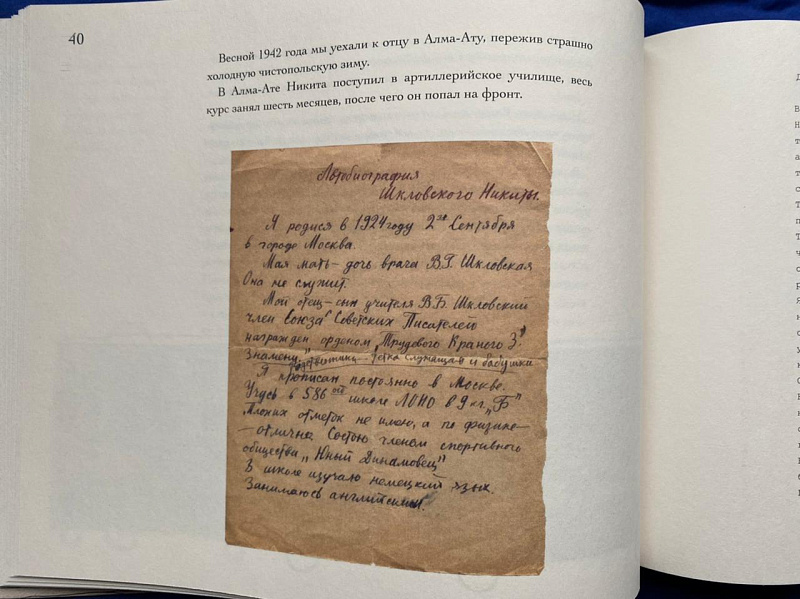 40
Весной 1942 года мы уехали к отцу в Алма-Ату, пережив страшно
холодную чистопольскую зиму.
В Алма-Ате Никита поступил в артиллерийское училище, весь
курс занял шесть месяцев, после чего он попал на фронт.
Автобиография
Шкловского Никиты.
Я родися в 1924 году 2го Сентября
в городе Москва.
Мая мать – дочь врача В.Г. Шкловская
Она не служит.
Мой отец – сын учителя В.Б. Шкловский
член Союза Советских Писателей
награжден орденом „Трудового Краного З.
Знамени." тётка служащая и бабушка
Я прописан постоянно в Москве.
Учусь в 586ой школе ЛОНО в 9 кл. „Б"
Плохих отметок не имею, а по физике
– отлично. Состою членом спортивного
общества „Юный Динамовец"
В школе изучаю немецкий язык.
Занимаюсь